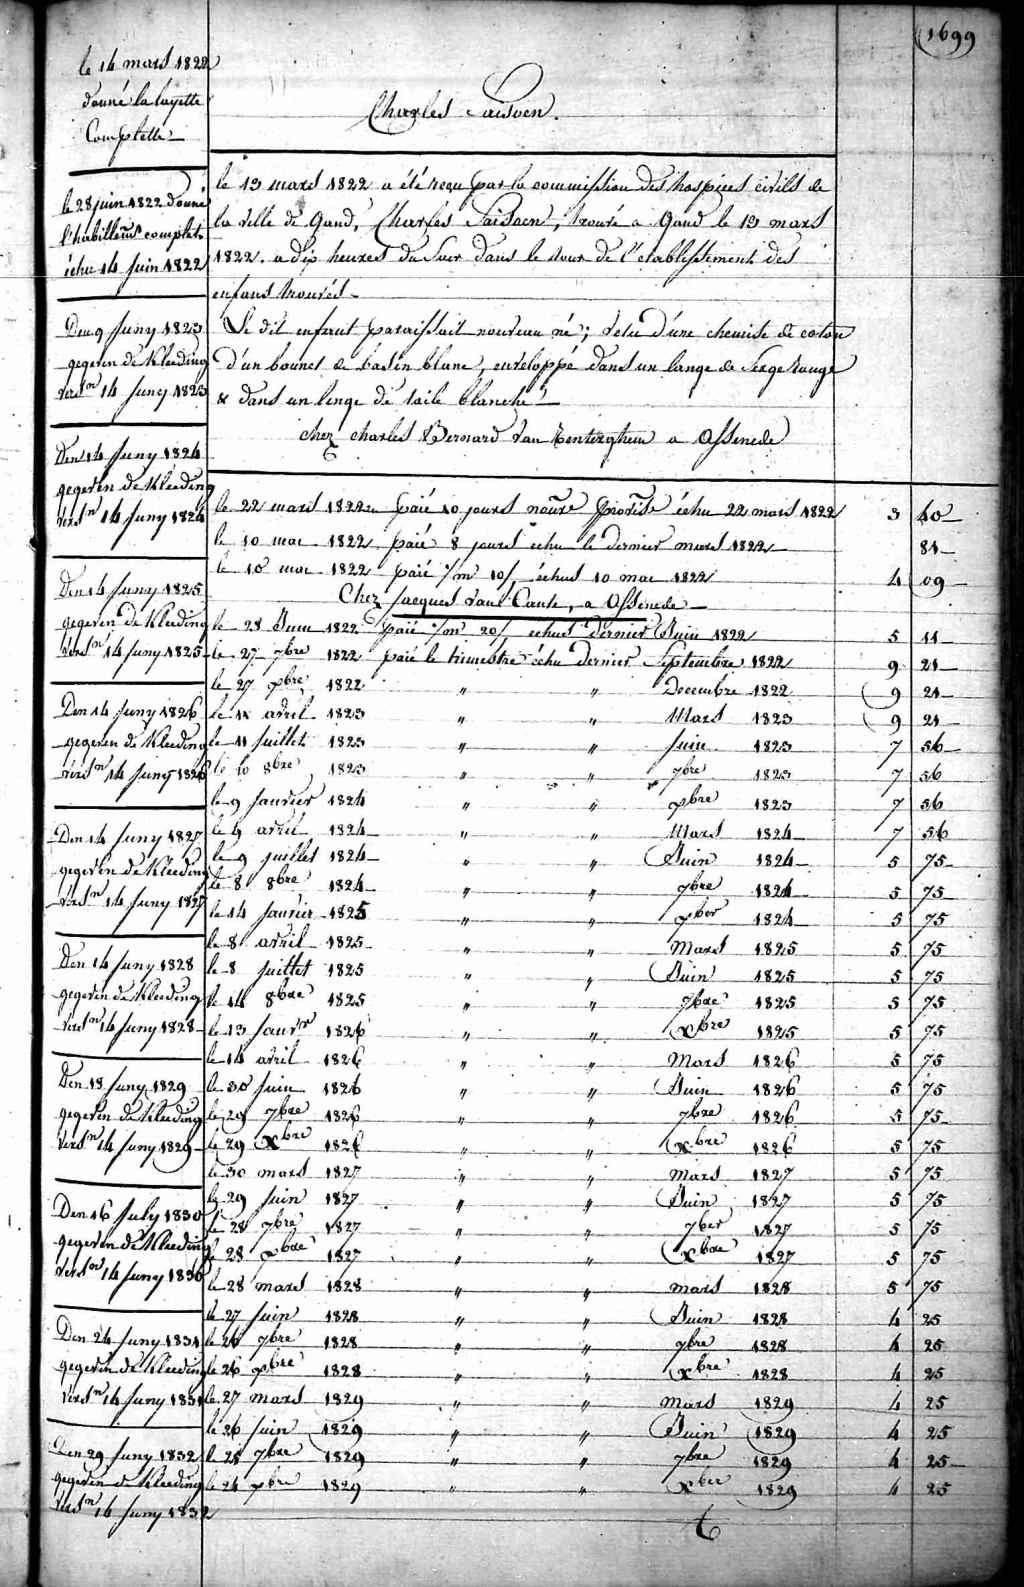 1699
le 14 mars 1822
donné la layette
Complette
le 28 juin 1822 donné
l'habillem.t complet
échu 14 Juin 1822
Den 9 Juny 1823
gegeven de Kleeding
vers.n 14 Juny 1823
Den 14 Juny 1824
gegeven de Kleeding
vers.n 14 Juny 1824
Den 14 Juny 1825
gegeven de Kleeding
vers.n 14 Juny 1825
Den 14 Juny 1826
gegeven de Kleeding
vers.n 14 Juny 1826
Den 14 Juny 1827
gegeven de Kleeding
vers.n 14 Juny 1827
Den 14 Juny 1828
gegeven de Kleeding
vers.n 14 Juny 1828
Den 18 Juny 1829
gegeven de Kleeding
vers.n 14 Juny 1829
Den 16 July 1830
gegeven de Kleeding
vers.n 14 Juny 1830
Den 24 Juny 1831
gegeven de Kleeding
vers.n 14 Juny 1831
Den 29 Juny 1832
gegeven de Kleeding
vers.n 14 Juny 1832
Charles Saisoen.
le 13 mars 1822 a été reçu par la commission des hospices civils de
la ville de Gand, Charles Saisoen, trouvé a Gand le 13 mars
1822. a dix heures du soir dans le tour de l'etablissement des
enfans trouvés
Le dit enfant paraissait nouveau né; vetu d'une chemise de coton
d'un bonnet de basin blanc, enveloppé dans un lange de Serge rouge
& dans un linge de toile blanche
chez charles Bernard Van Renterghem a Assenede
le 22 mars 1822 paié 10 jours échu 22 mars 1822 3 40
le 10 mai 1822 paié 8 jours echu le dernier mars 1822 81
le 10 mai 1822 paié échus 10 mai 1822 4 09
Chez Jacques a Assenede
le 28 Juin 1822 paié echus dernier Juin 1822 5 11
le 27 7bre 1822 paié le trimestre échu dernier Septembre 1822 9 21
le 27 xbre 1822 " " Decembre 1822 9 21
le 11 avril 1823 " " Mars 1823 9 21
le 11 Juillet 1823 " " Juin 1823 7 56
le 10 8bre 1823 " " 7bre 1823 7 56
le 9 Janvier 1824 " " xbre 1823 7 56
le 9 avril 1824 " " Mars 1824 7 56
le 9 juillet 1824 " " Juin 1824 5 75
le 8 8bre 1824 " " 7bre 1824 5 75
le 14 Janvier 1825 " " xber 1824 5 75
le 8 avril 1825 " " Mars 1825 5 75
le 8 Juillet 1825 " " Juin 1825 5 75
le 14 8bre 1825 " " 7bre 1825 5 75
le 13 Janv.r 1826 " " Xbre 1825 5 75
le 14 avril 1826 " " Mars 1826 5 75
le 30 Juin 1826 " " Juin 1826 5 75
le 29 7bre 1826 " " 7bre 1826 5 75
le 29 Xbre 1826 " " Xbre 1826 5 75
le 30 mars 1827 " " Mars 1827 5 75
le 29 Juin 1827 " " Juin 1827 5 75
le 28 7bre 1827 " " 7ber 1827 5 75
le 28 xbre 1827 " " Xbre 1827 5 75
le 28 mars 1828 " " mars 1828 5 75
le 27 Juin 1828 " " Juin 1828 4 25
le 26 7bre 1828 " " 7bre 1828 4 25
le 26 xbre 1828 " " Xbre 1828 4 25
le 27 mars 1829 " " mars 1829 4 25
le 26 Juin 1829 " " Juin 1829 4 25
le 25 7bre 1829 " " 7bre 1829 4 25
le 24 xbre 1829 " " Xber 1829 4 25